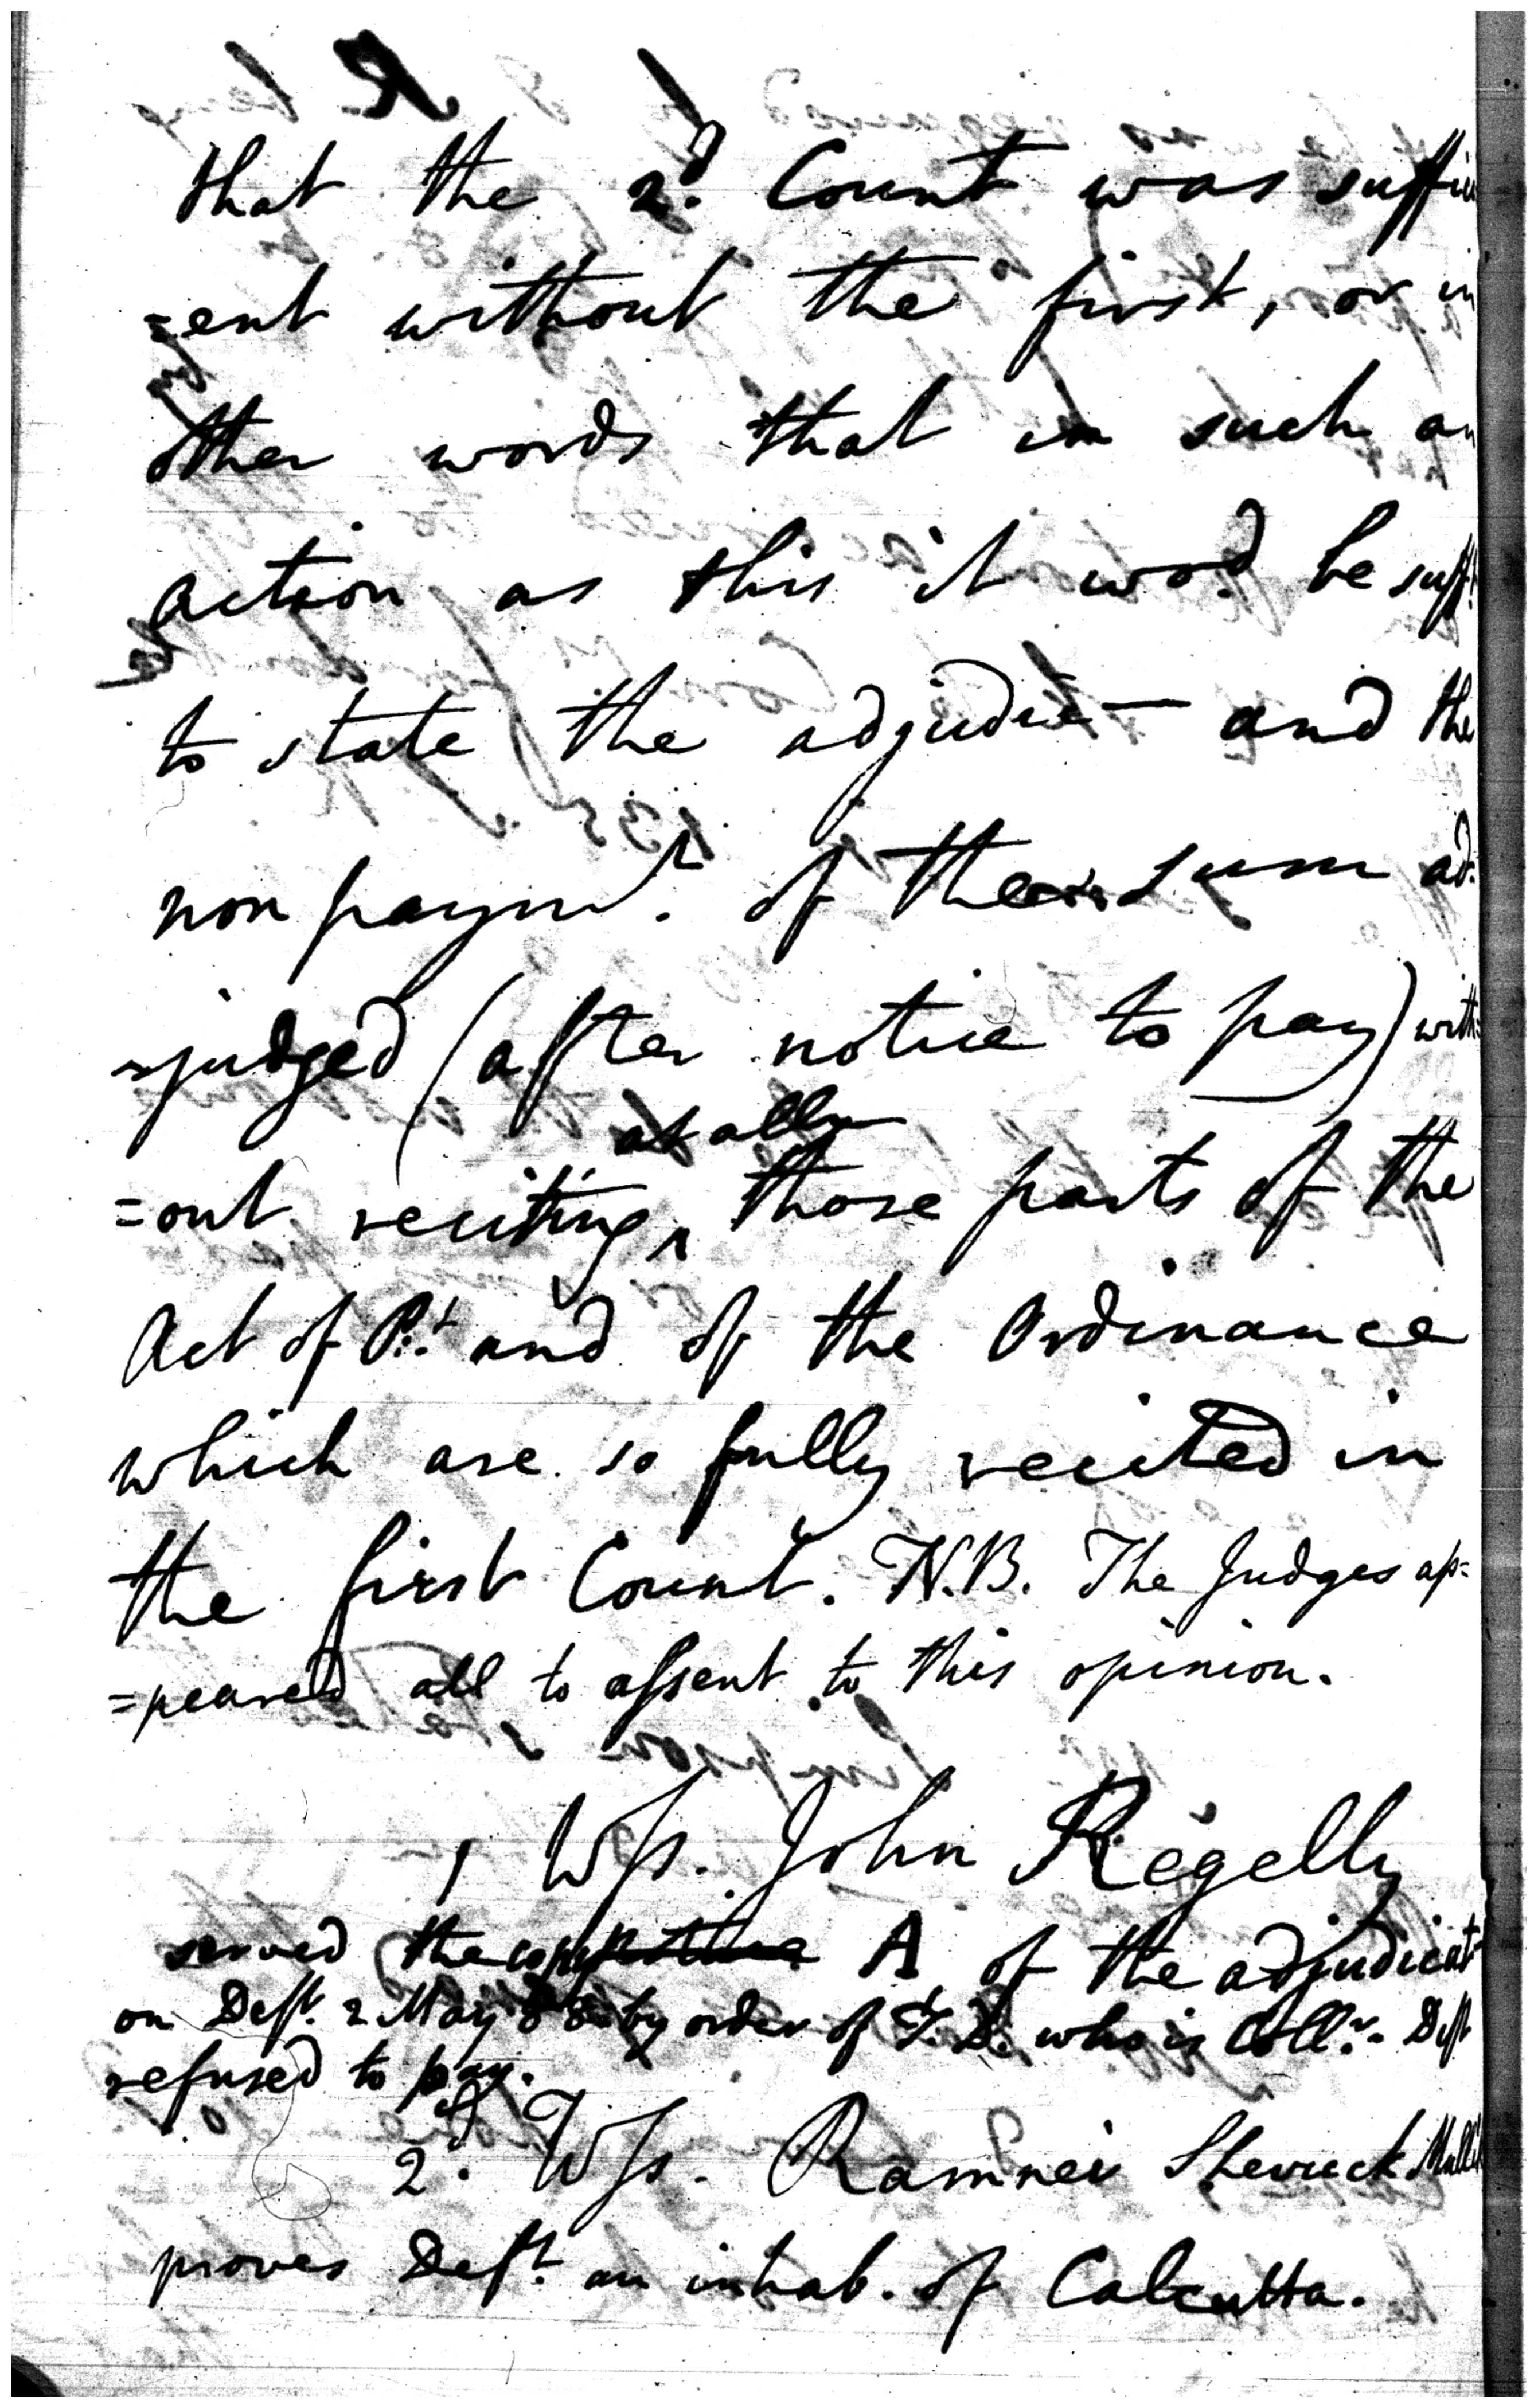 that the 2.d Count was suffici
=ent without the first, or in
other words that in such an
action as this it wod. be suff.t
to state the adjudic— and the
non paym.t of the sum ad:
=judged (after notice to pay) with=
at all
=out reciting ^ those parts of the
Act of P.t and of the Ordinance
which are so fully recited in
the first Count. N.B. The Judges ap=
=peared all to assent to this opinion.
1 Wss. John Regelly
served the copy A of the adjudicat—
on Deft. 2 May by order of who is Coll.r Deft
refused to pay.
2.d Wss. Ramnei Sheruck Mullik
proves Deft. an inhab. of Calcutta.